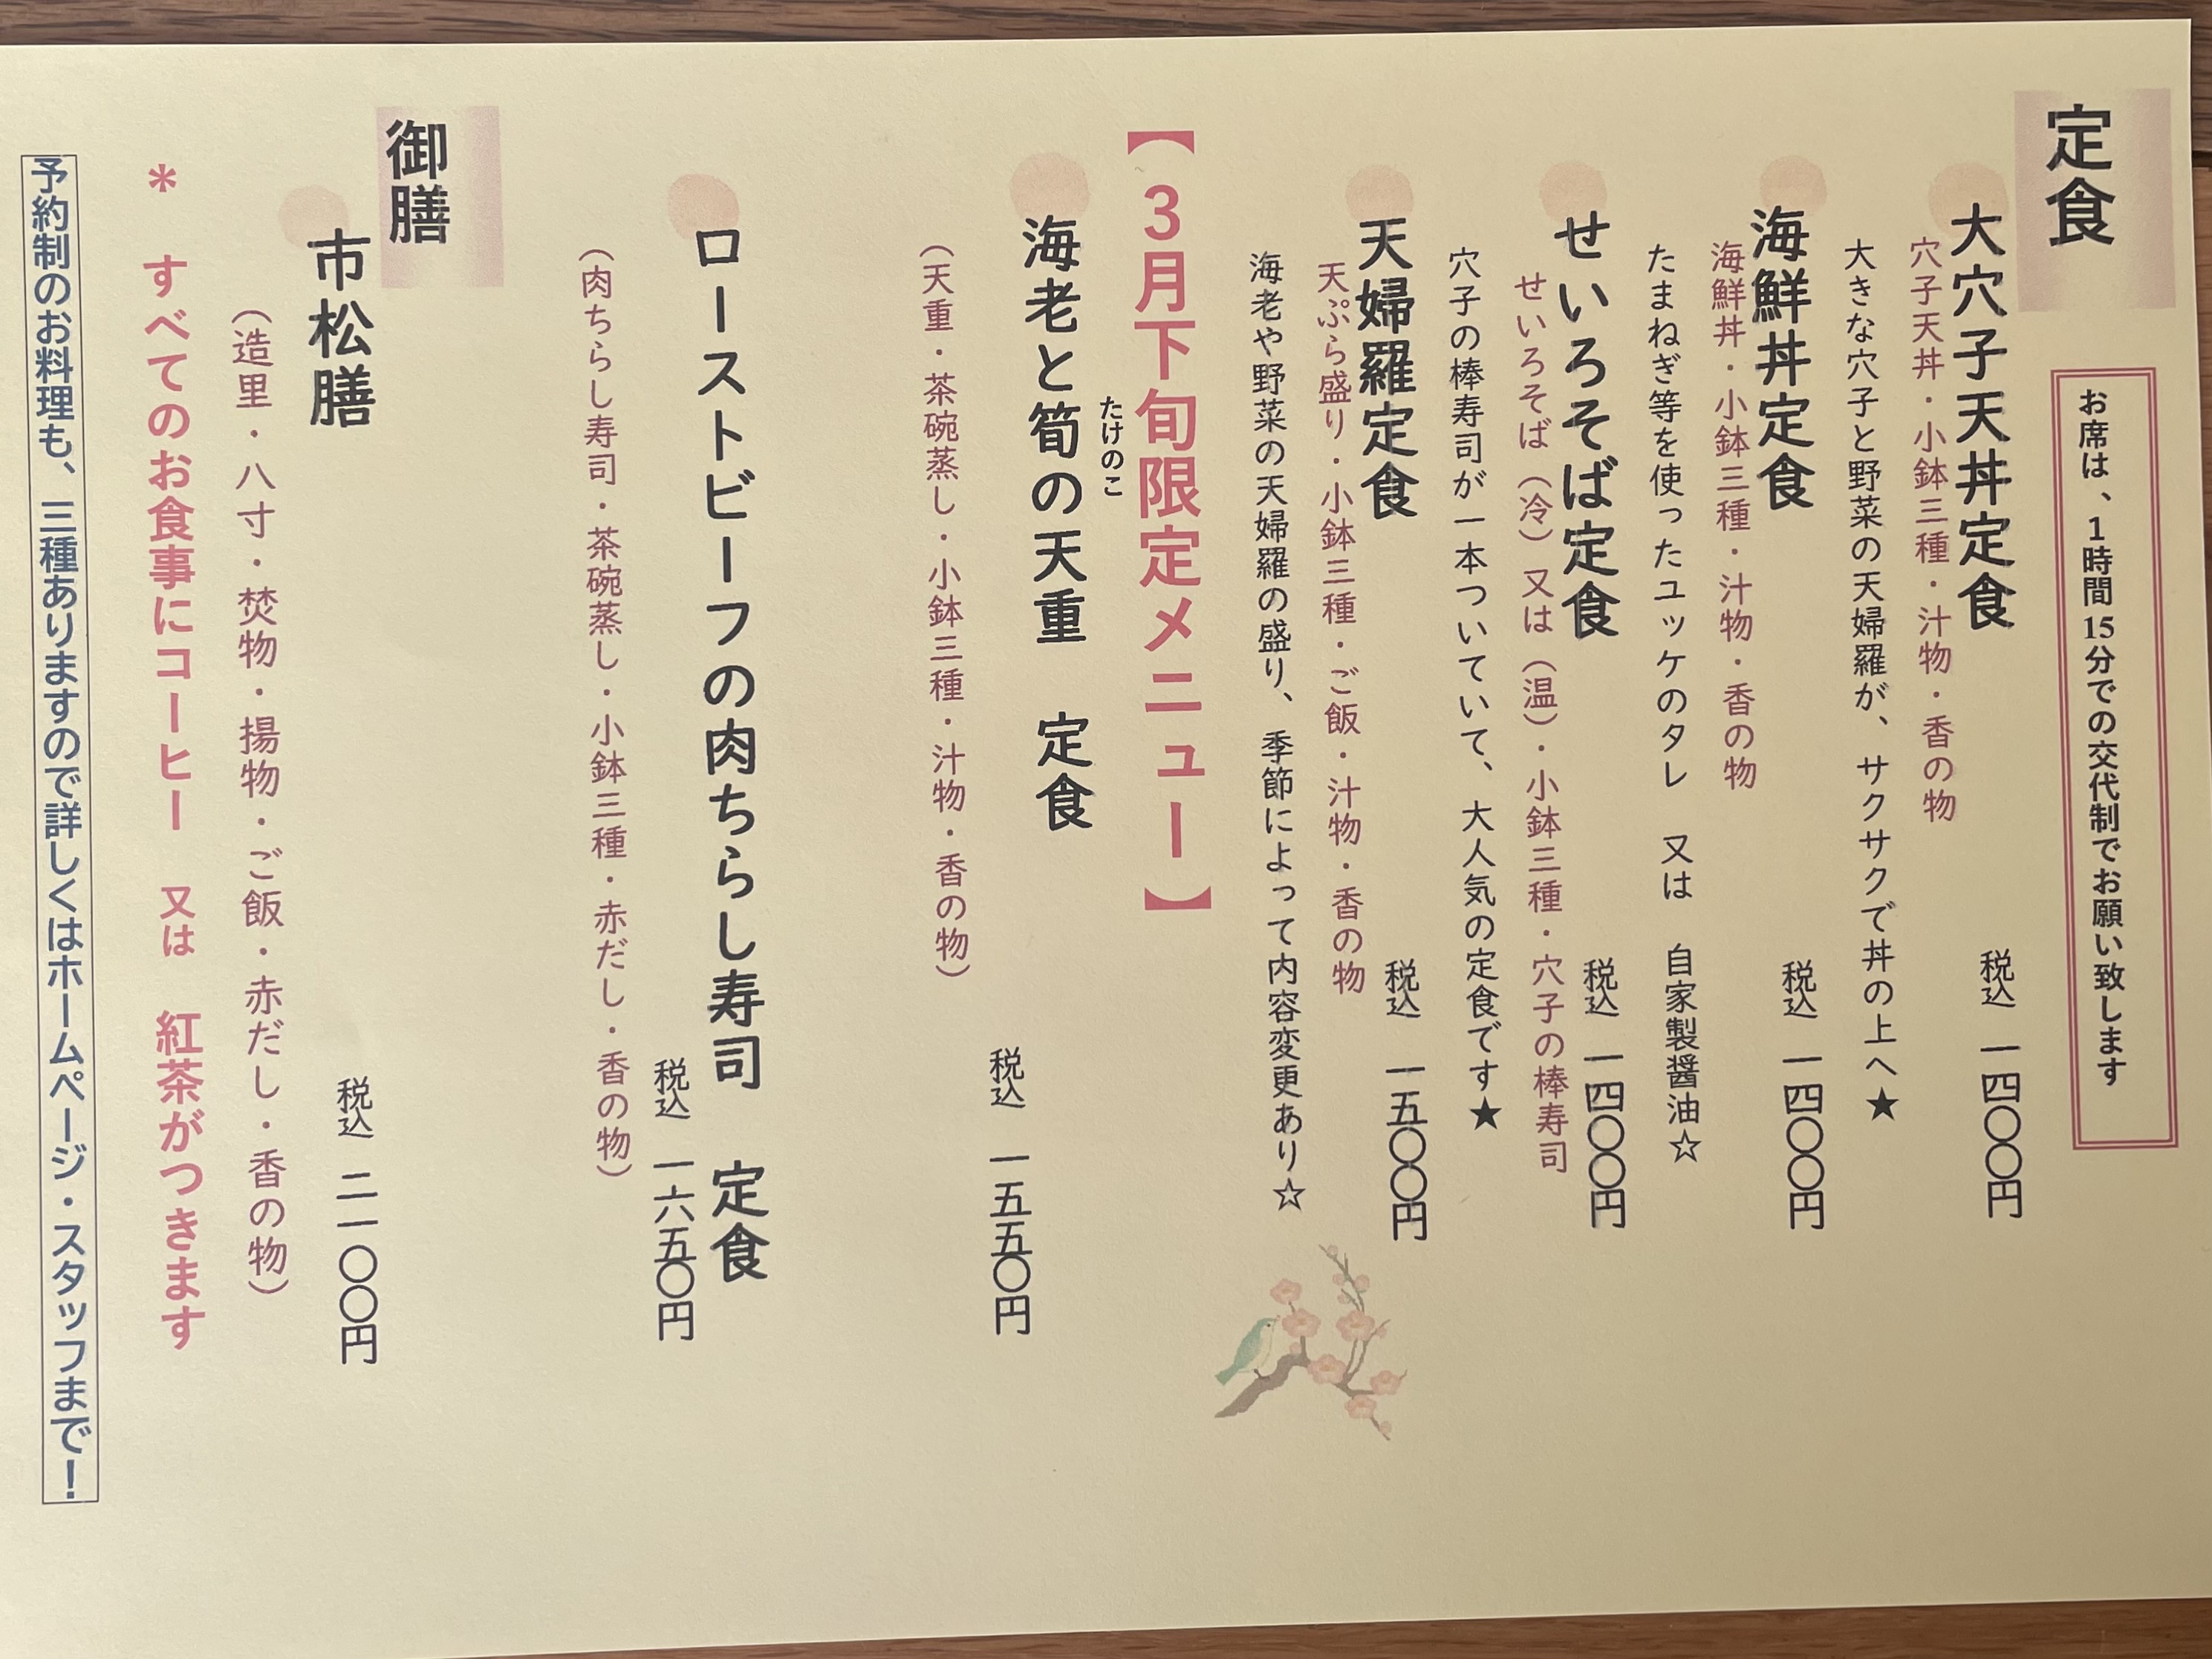 定食
お席は、1時間15分での交代制でお願い致します
大穴子天丼定食
税込 一四〇〇円
穴子天丼・小鉢三種・汁物・香の物
大きな穴子と野菜の天婦羅が、サクサクで丼の上へ★
海鮮丼定食
税込 一四〇〇円
海鮮丼・小鉢三種・汁物・香の物
たまねぎ等を使ったユッケのタレ 又は 自家製醤油☆
せいろそば定食
税込 一四〇〇円
せいろそば（冷）又は（温）・小鉢三種・穴子の棒寿司
穴子の棒寿司が一本ついていて、大人気の定食です★
天婦羅定食
税込 一五〇〇円
天ぷら盛り・小鉢三種・ご飯・汁物・香の物
海老や野菜の天婦羅の盛り、季節によって内容変更あり☆
【3月下旬限定メニュー】
たけのこ
海老と筍の天重 定食
税込 一五五〇円
（天重・茶碗蒸し・小鉢三種・汁物・香の物）
ローストビーフの肉ちらし寿司 定食
税込 一六五〇円
（肉ちらし寿司・茶碗蒸し・小鉢三種・赤だし・香の物）
御膳
市松膳
税込 二一〇〇円
（造里・八寸・焚物・揚物・ご飯・赤だし・香の物）
* すべてのお食事にコーヒー 又は 紅茶がつきます
予約制のお料理も、三種ありますので詳しくはホームページ・スタッフまで！